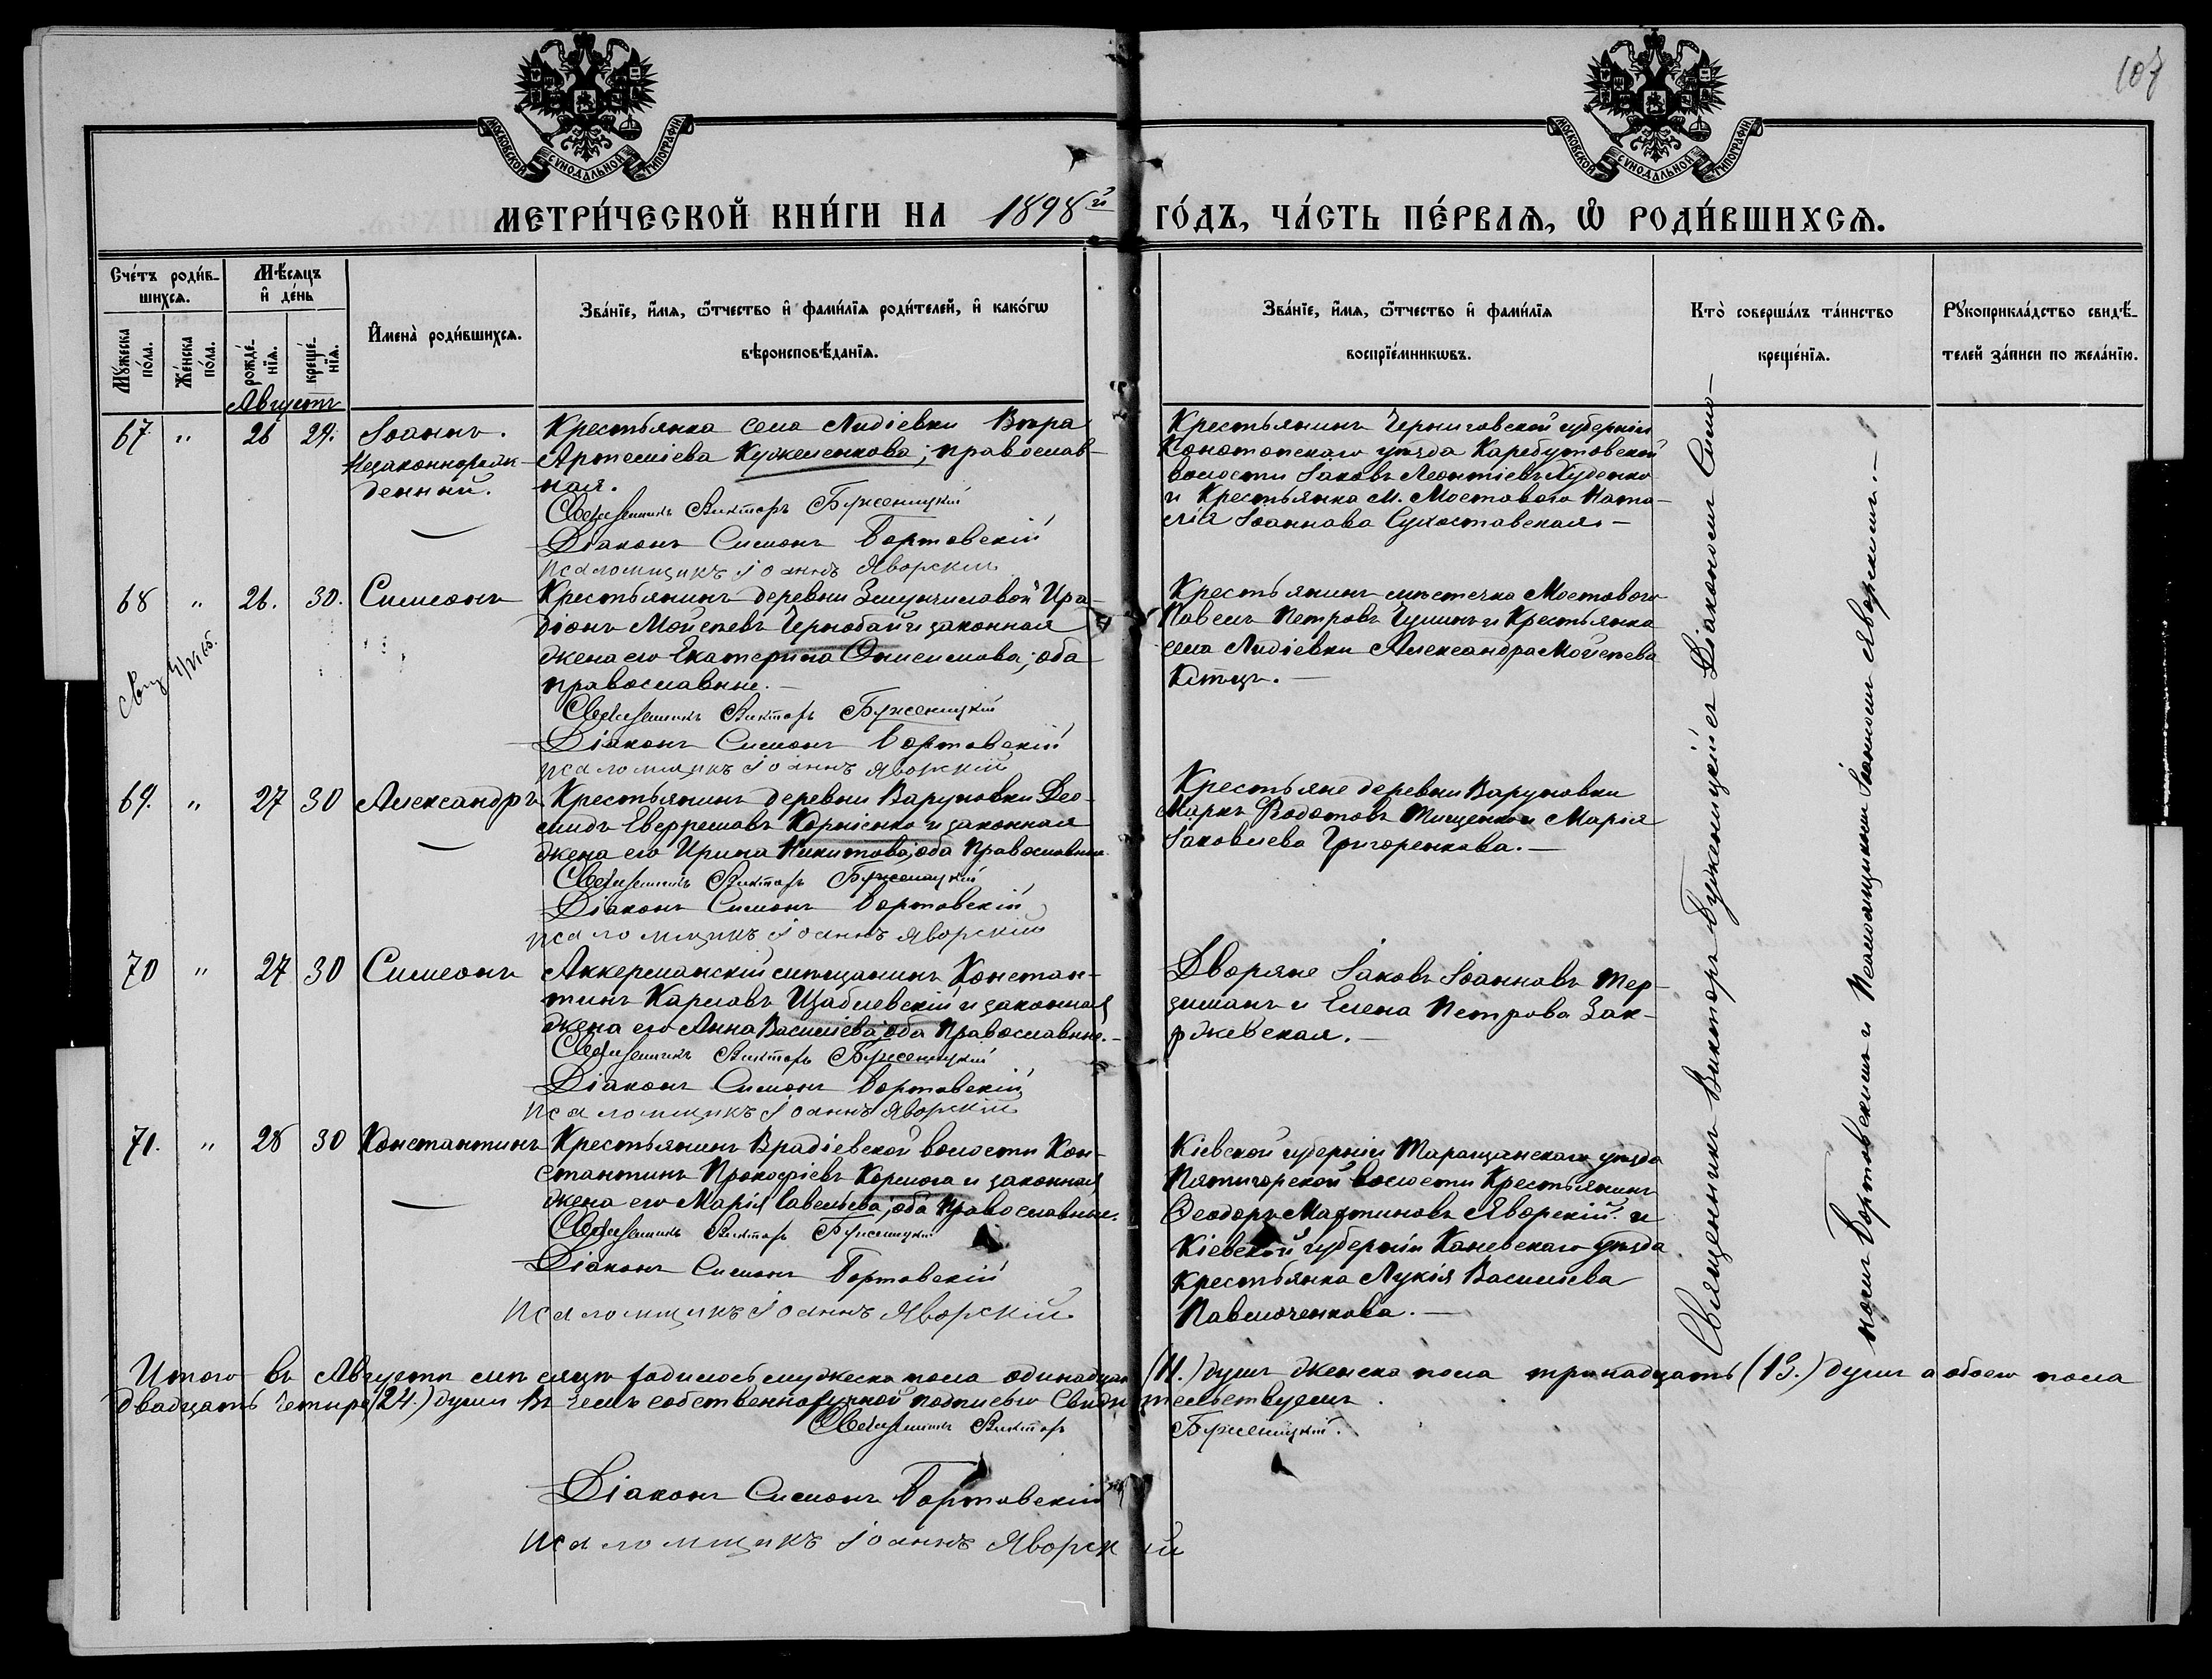 107
МОСКОВСКОЙ СѴНОДАЛЬНОЙ ТИПОГРАФІИ
МОСКОВСКОЙ СѴНОДАЛЬНОЙ ТИПОГРАФІИ
МЕТРИ́ЧЕСКОЙ КНИ́ГИ НА 1898й ГО́ДЪ, ЧА́СТЬ ПЕ́РВАЯ, Ѽ РОДИ́ВШИХСЯ.
Сче́тъ роди́в-
шихся.
Мꙋ́жеска по́ла.
Же́нска по́ла.
Мѣ́сяцъ и҆ де́нь
рожде́-нїя.
креще́-нїя.
И҆мена̀ роди́вшихся.
Зва́нїе, и҆́мя, ѻ҆́тчество и҆ фами́лїя роди́телей, и҆ како́гѡ
вѣроисповѣ́данїя.
Зва́нїе, и҆́мя, ѻ҆́тчество и҆ фами́лїя
воспрїе́мникѡвъ.
Кто̀ соверша́лъ та́инство
креще́нїя.
Рꙋкоприкла́дство свидѣ́-
телей за́писи по жела́нїю.
Августъ
67 " 26 29. Іоаннъ.
Незаконнорож-
денный.
Крестьянка села Лидіевки Вѣра
Артеміева Кужеленкова; православ-
ная.
Священникъ Викторъ Буженицкій
Діаконъ Симонъ Бортовскій
Псаломщикъ Іоаннъ Яворскій
Крестьянинъ Черниговской губерніи
Конотопскаго уѣзда Карабутовской
волости Іаковъ Леонтіевъ Худенко
и Крестьянка м. Мостового Ната-
лія Іоаннова Сухоставская.—
68 " 26. 30. Симеонъ
Крестьянинъ деревни Ира-
діонъ Мойсеевъ Чернобай и законная
жена его Екатерина Онисимова; оба
православные.—
Священникъ Викторъ Буженицкій
Діаконъ Симонъ Бортовскій
Псаломщикъ Іоаннъ Яворскій
Крестьянинъ мѣстечка Мостового
Павелъ Петровъ Чушинъ и Крестьянка
села Лидіевки Александра Мойсеева
69. " 27 30 Александръ
Крестьянинъ деревни Варуновки Део-
мидъ Корніенко и законная
жена его Ирина Никитова; оба Православные.
Священникъ Викторъ Буженицкій
Діаконъ Симонъ Бортовскій
Псаломщикъ Іоаннъ Яворскій
Крестьяне деревни Варуновки
Маркъ Тищенко и Марія
Іаковлева Григоренкова.—
70 " 27 30 Симеонъ
Аккерманскій мѣщанинъ Констан-
тинъ Карловъ Щаблевскій и законная
жена его Анна Василіева; оба Православные.—
Священникъ Викторъ Буженицкій
Діаконъ Симонъ Бортовскій
Псаломщикъ Іоаннъ Яворскій
Дворяне Іаковъ Іоанновъ Тер-
зиманъ и Елена Петрова Зак-
ржевская.—
71. " 28 30 Константинъ
Крестьянинъ Врадіевской волости Кон-
стантинъ Прокофіевъ Кормога и законная
жена его Марія Савельева; оба Православные.
Священникъ Викторъ Буженицкій
Діаконъ Симонъ Бортовскій
Псаломщикъ Іоаннъ Яворскій
Кіевской губерніи Таращанскаго уѣзда
Пятигорской волости Крестьянинъ
Ѳеодоръ Мартиновъ Яворскій и
Кіевской губерніи Каневскаго уѣзда
крестьянка Лукія Василіева
Павлюченкова.—
Священникъ Викторъ Буженицкій съ Діакономъ Симо-
номъ Бортовскимъ и Псаломщикомъ Іоанномъ Яворскимъ.—
Итого въ Августѣ мѣсяцѣ родилось мужеска пола одинадцать (11.) душъ женска пола тринадцать (13.) душъ а обоего пола
двадцать четыре (24.) души въ чемъ собственноручной подписью Свидѣтельствуемъ.
Священникъ Викторъ Буженицкій.
Діаконъ Симонъ Бортовскій
Псаломщикъ Іоаннъ Яворскій